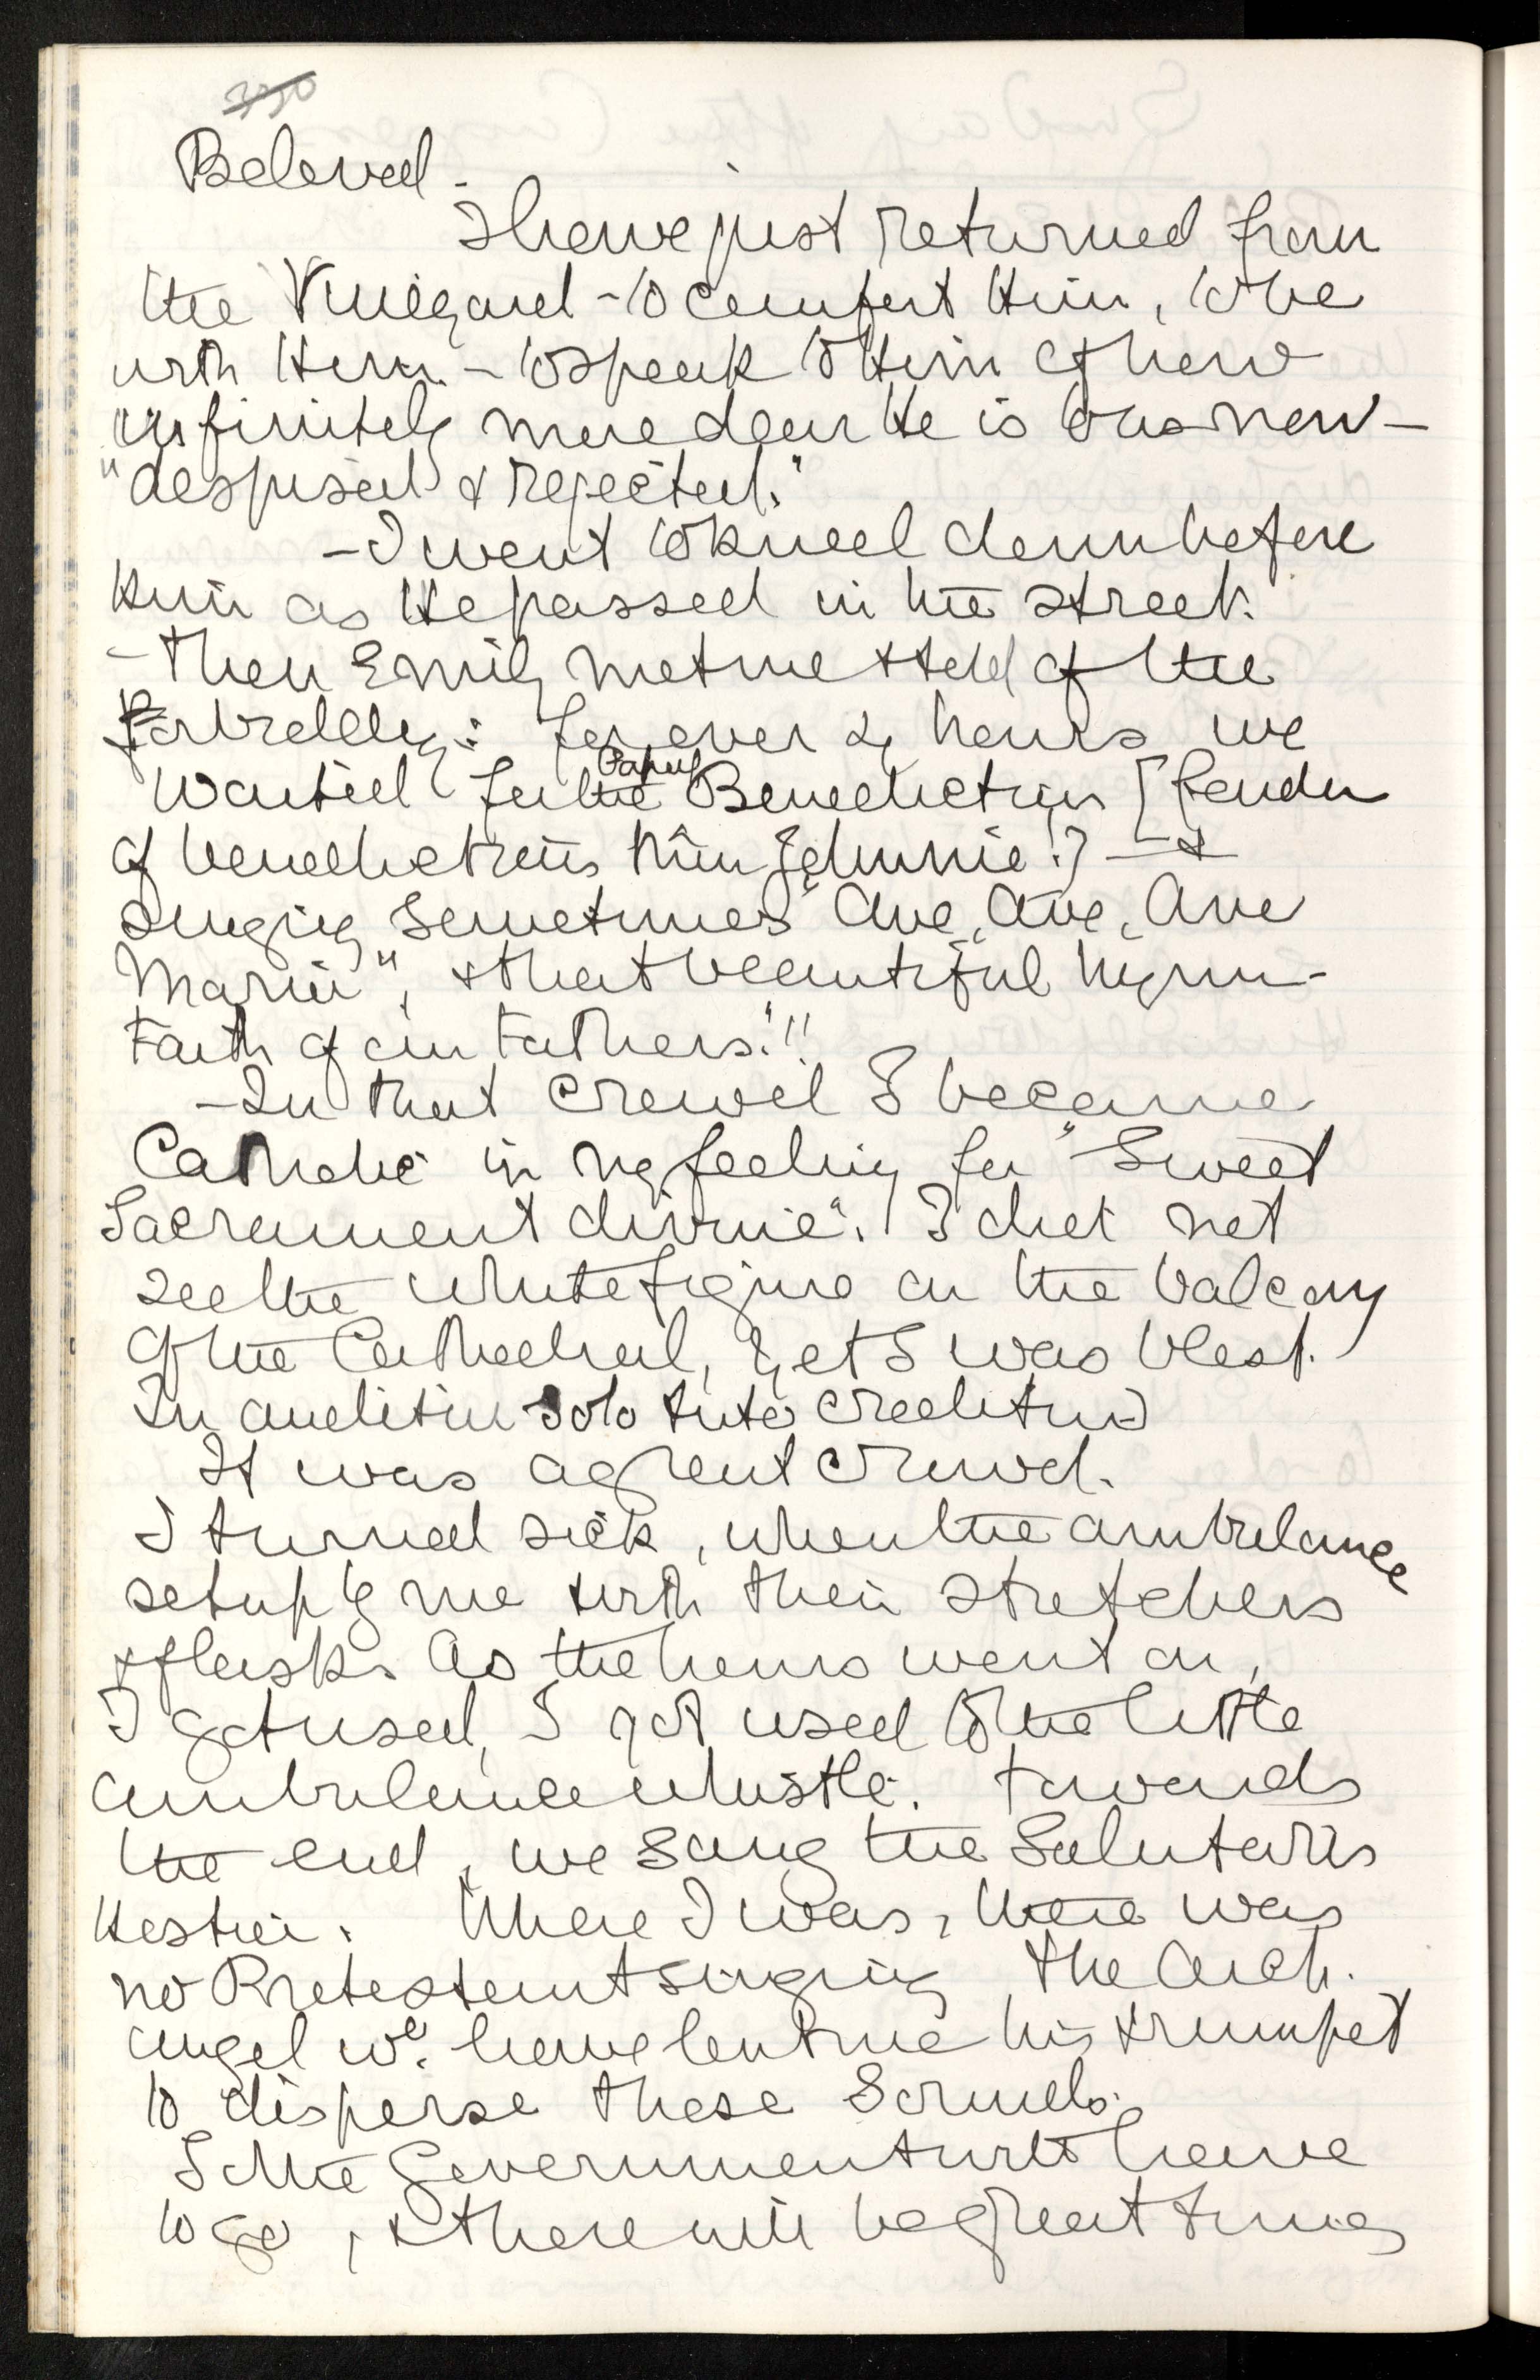 Beloved -
I have just returned from
the Vineyard - to comfort Him, to be
with Him - to speak to Him of how
infinitely more dear He is to us now -
"despised & rejected."
- I went to kneel down before
Him as He passed in the street.
- Then Emily met me & told of the
: for over 2 hours we
waited for the Papal Benediction [fonder
of benedictions than Johnnie!] - &
singing sometimes "Ave, Ave, Ave
Maria", & that beautiful hymn -
Faith of our Fathers."!!
- In that crowd I became
Catholic in my feeling for "Sweet
Sacrament divine". I did not
see the white figure on the balcony
of the Cathedral, yet I was blest.
In auditu solo tuto creditur
It was a great crowd.
I turned sick, when the ambulance
set up by me with their stretchers
& flask. As the hours went on,
I got used, I got used to the little
ambulance whistle. Towards
the end, we sang the Salutaris
Hostia. Where I was, there was
no Protestant singing The Arch.
angel wd. have lent me his trumpet
to disperse these
The Government will have
to go, & there will be great times